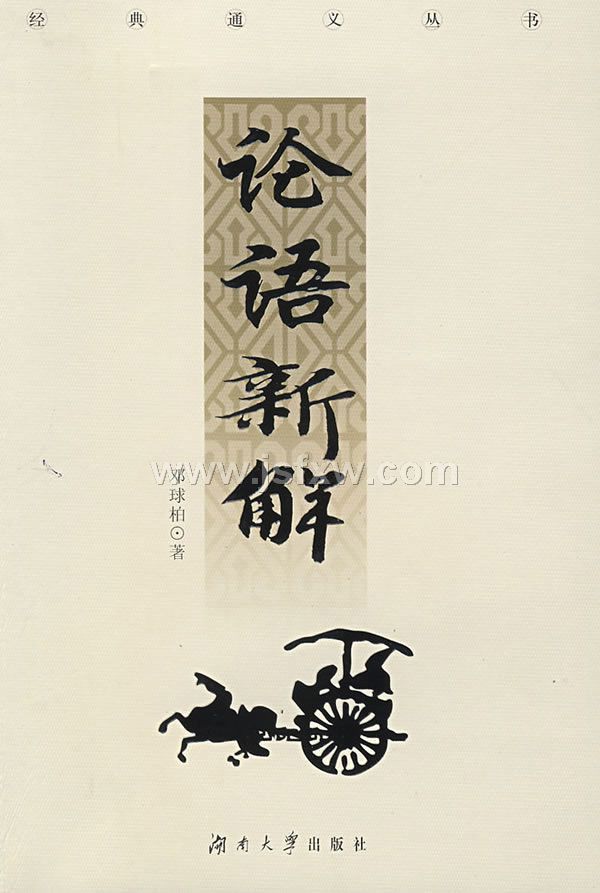 经典通义丛书
论语新解
邓球柏⊙著
www.jsfxw.com
湖南大学出版社